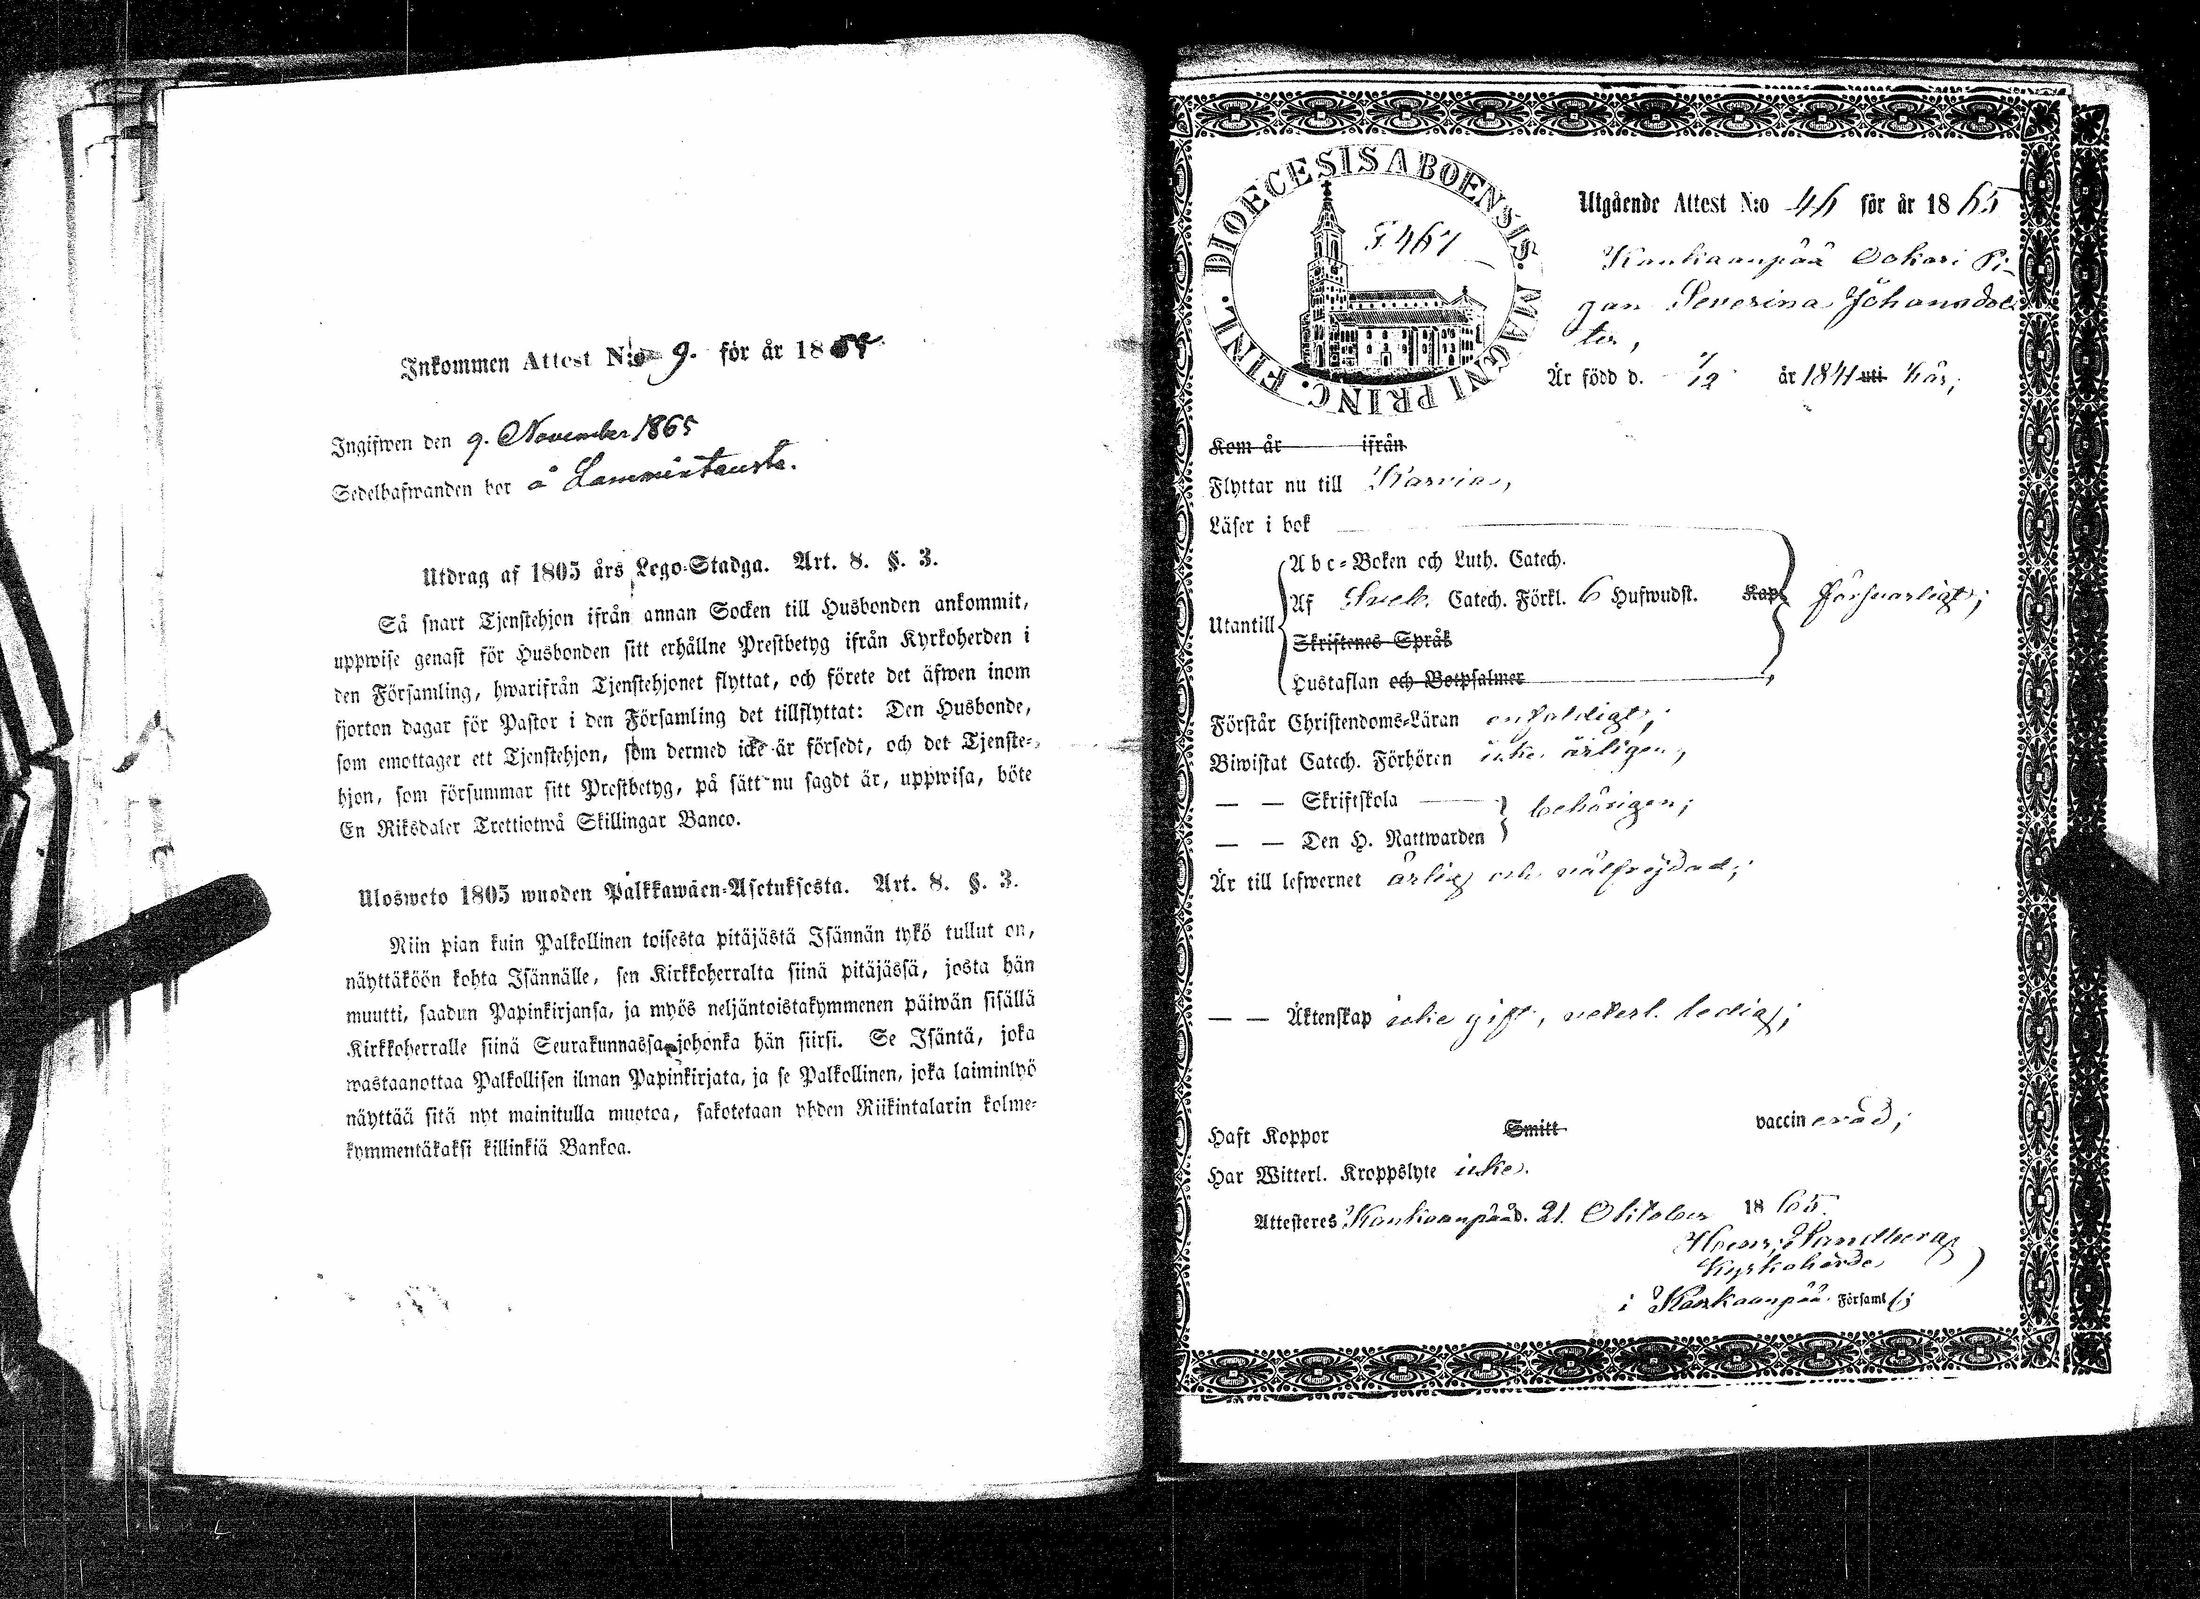 Inkommen Attest N:o 9. för år 1865
Ingifwen den 9. November 1865
Sedelhafwanden bor å Lammintausta.
Utdrag af 1805 års Lego-Stadga. Art. 8. §. 3.
Så snart Tjenstehjon ifrån annan Socken till Husbonden ankommit,
uppwise genast för Husbonden sitt erhållne Prestbetyg ifrån Kyrkoherden i
den Församling, hwarifrån Tjenstehjonet flyttat, och förete det äfwen inom
fjorton dagar för Pastor i den Församling det tillflyttat: Den Husbonde,
som emottager ett Tjenstehjon, som dermed icke är försedt, och det Tjenste-
hjon, som försummar sitt Prestbetyg, på sätt nu sagdt är, uppwisa, böte
En Riksdaler Trettiotwå Skillingar Banco.
Ulosweto 1805 wuoden Palkkawäen-Asetuksesta. Art. 8. §. 3.
Niin pian kuin Palkollinen toisesta pitäjästä Isännän tykö tullut on,
näyttäköön kohta Isännälle, sen Kirkkoherralta siinä pitäjässä, josta hän
muutti, saadun Papinkirjansa, ja myös neljäntoistakymmenen päiwän sisällä
Kirkkoherralle siinä Seurakunnassa, johonka hän siirsi. Se Isäntä, joka
wastaanottaa Palkollisen ilman Papinkirjata, ja se Palkollinen, joka laiminlyö
näyttää sitä nyt mainitulla muotoa, sakotetaan yhden Riikintalarin kolme-
kymmentäkaksi killinkiä Bankoa.
DIOECESIS ABOENSIS. MAGNI PRINC. FINL.
F. 467
Utgående Attest N:o 46 för år 1865
Kankaanpää Pi-
gan Severina Johansdot
ter,
Är född d. 1/12 år 1841 uti här;
Kom år ifrån
Flyttar nu till Karvia,
Läser i bok
Abc-Boken och Luth. Catech.
Utantill Af Sveb. Catech. Förkl. 6 Hufwudst. Kap. försvarligt;
Skriftenes Språk
Hustaflan och Botpsalmer
Förstår Christendoms-Läran enfaldigt;
Biwistat Catech. Förhören icke årligen;
— — Skriftskola
behörigen;
— — Den H. Nattwarden
Är till lefwernet ärlig och välfrejdad;
— — Äktenskap icke gift, veterl. ledig;
Haft Koppor Smitt vaccinerad;
Har Witterl. Kroppslyte icke.
Attesteres Kankaanpää d. 21. Oktober 1865.
Kyrkoherde
i Kankaanpää Församl.;